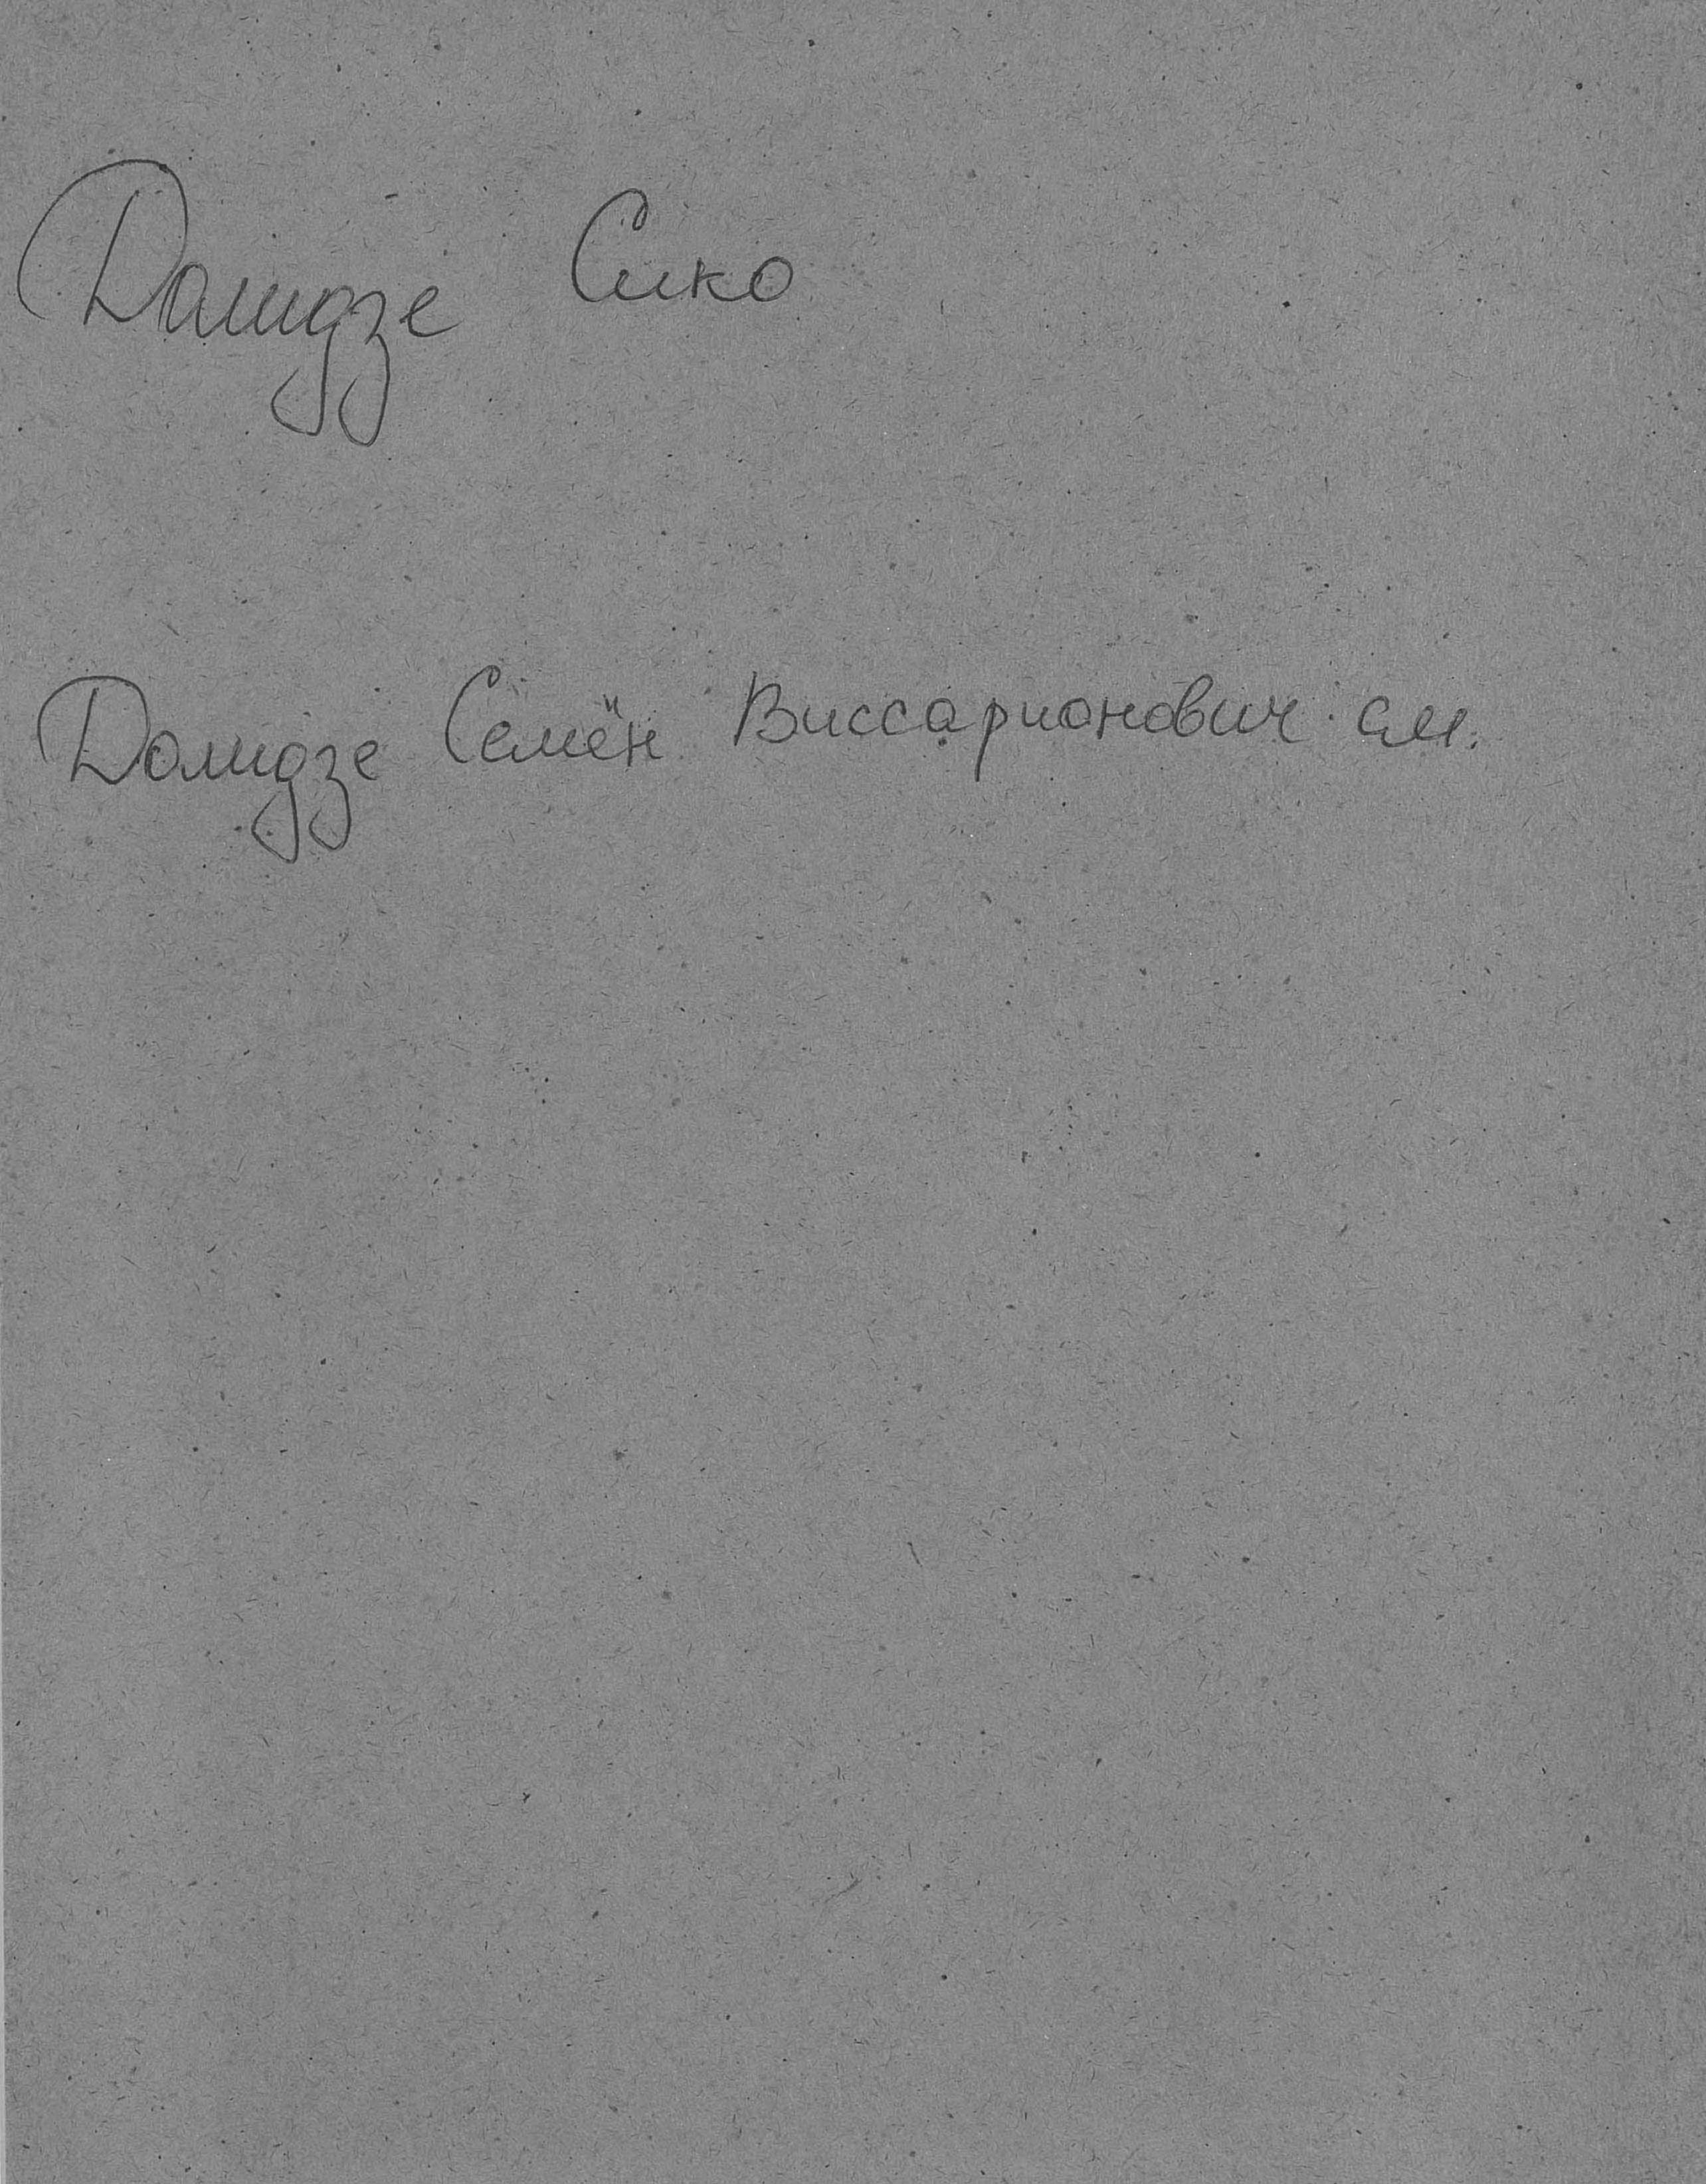 Долидзе Сико
Долидзе Семён Виссарионович см.